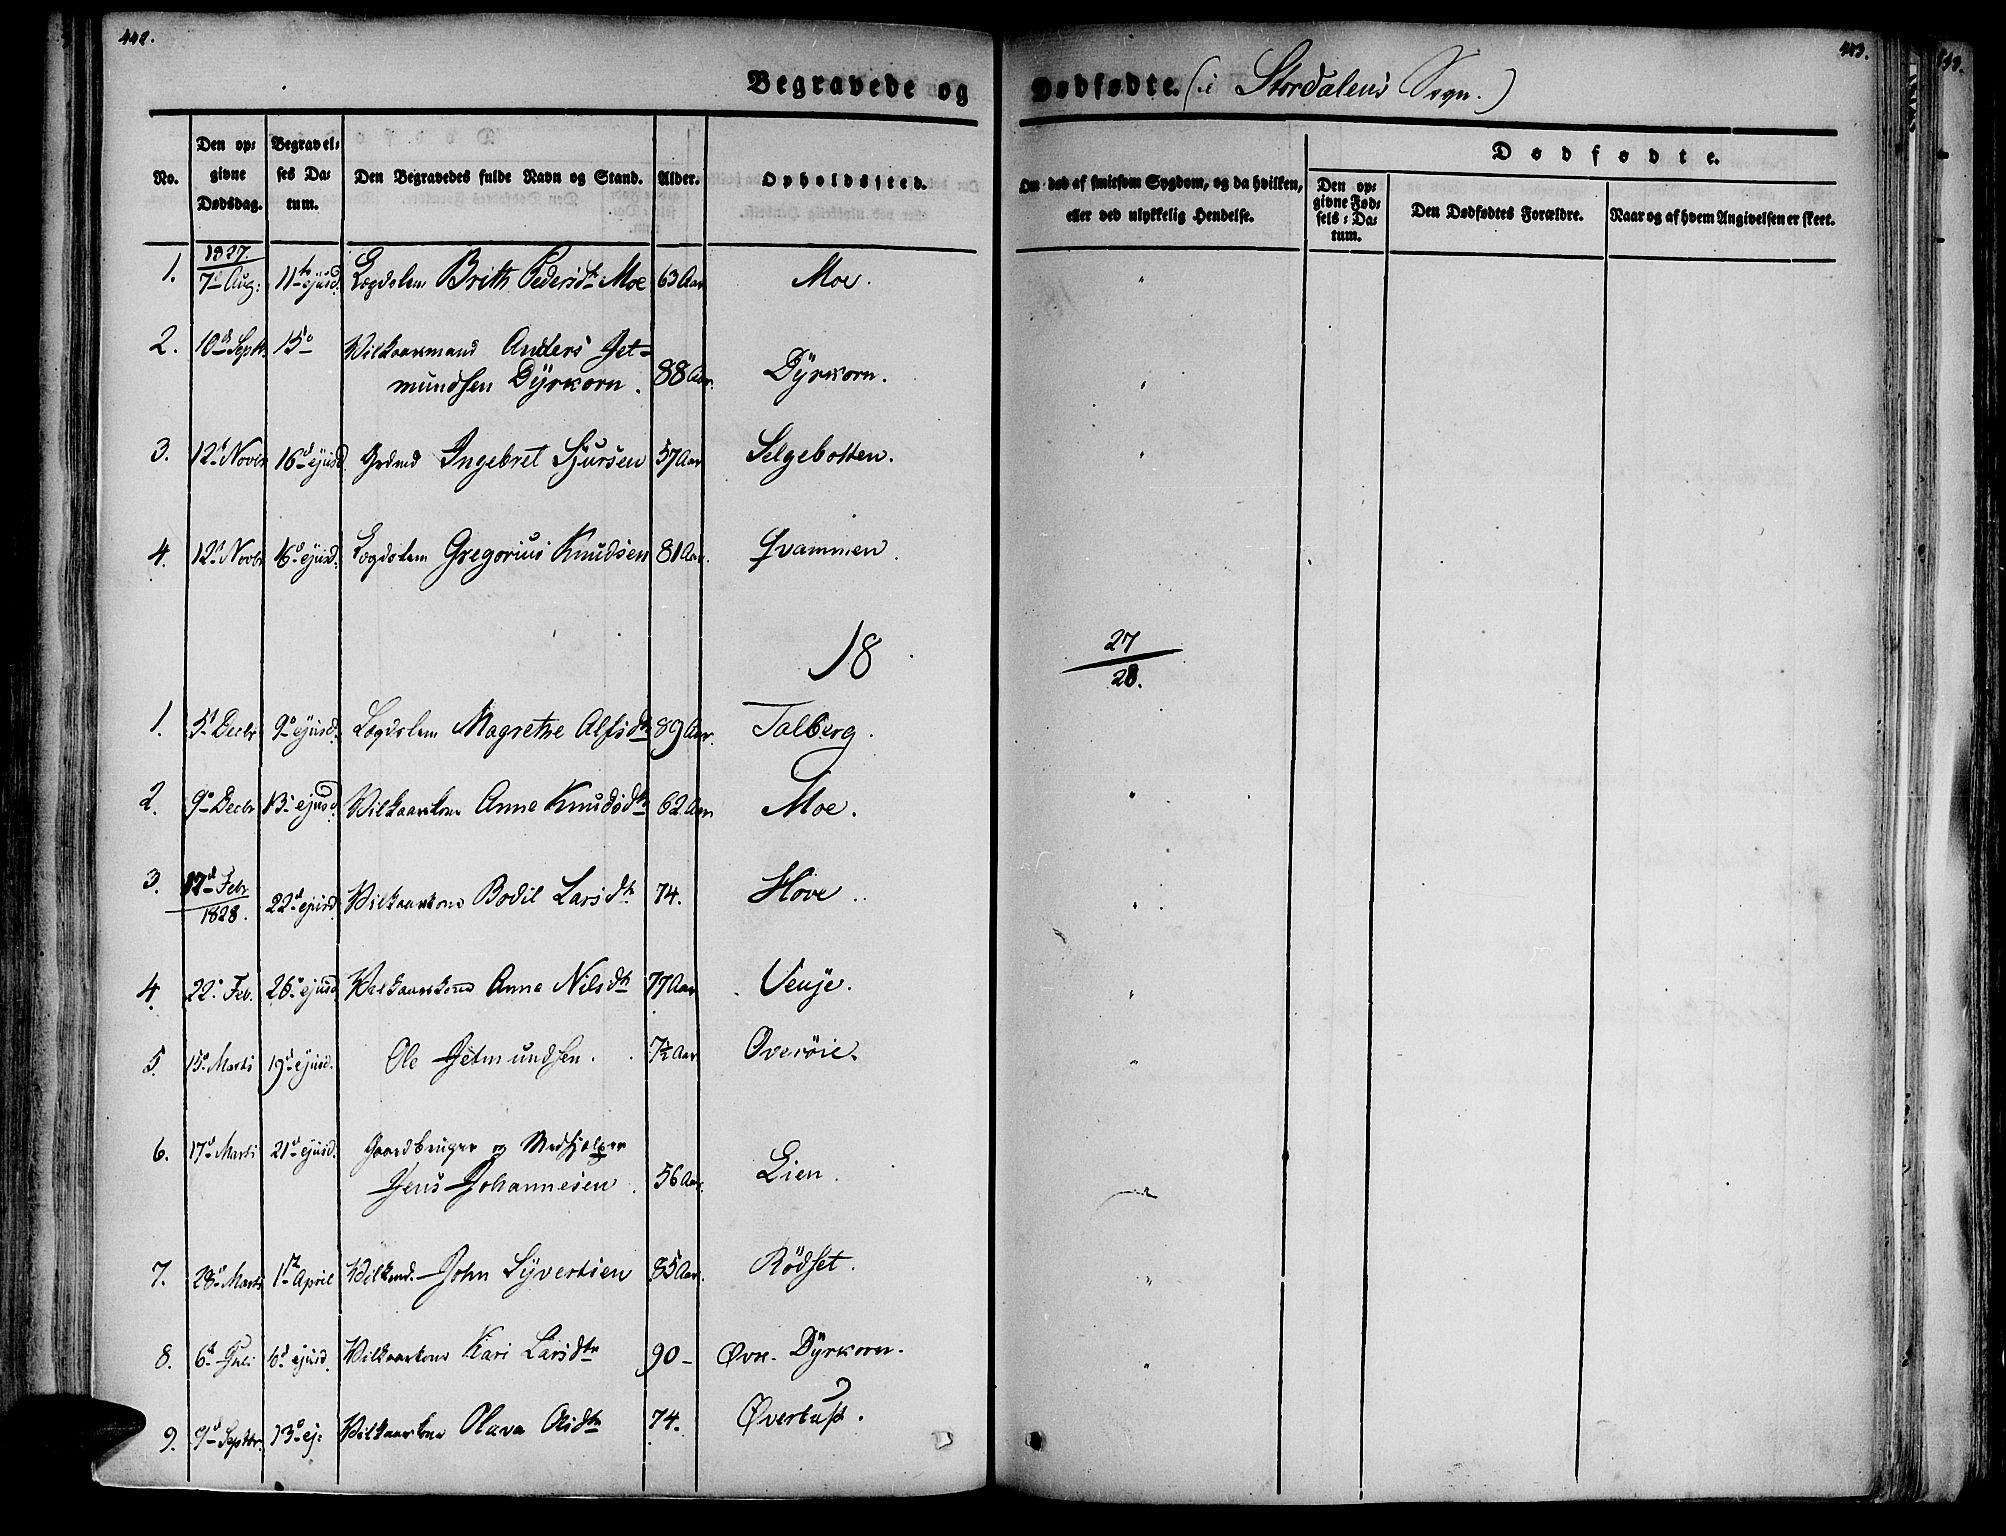 442.
443.
Begravede og Dødfødte. (i Stordalens Sogn.)
No.
Den op-
givne
Dødsdag.
Begravel-
ses Da-
tum.
Den Begravedes fulde Navn og Stand.
Alder.
Opholdssted.
Om død af smitsom Sygdom, og da hvilken,
eller ved ulykkelig Hendelse.
Dødfødte.
Den op-
givne Fød-
sels-Da-
tum.
Den Dødfødtes Forældre.
Naar og af hvem Angivelsen er skeet.
1827.
1. 7d Aug: 11te ejusd. Lægdslem Brith Pedersdtr Moe 63 Aar Moe. "
2. 10d Septbr 15o Vilkaarsmand Anders Jet-
mundsen Dÿrkorn. 88 Aar. Dÿrkorn. "
3. 12d Novbr 16d ejusd. Grdmd Ingebret Sjursen 57 Aar Selgebotten. "
4. 12d Novbr 16d ejusd. Lægdslem Gregorius Knudsen 81 Aar. Qvammen.
18 27/28.
1. 5d Decbr 9o ejusd. Lægdslem Magrethe Alfsdtr 89 Aar. Talberg.
2. 9o Decbr 13d ejusd. Vilkaarskone Anne Knudsdtr 62 Aar Moe. "
3. 17d Febr 1828. 22d ejusd. Vilkaarskone Bodil Larsdtr 74. Hove. "
4. 22d Feb. 26o ejusd. Vilkaarskone Anne Nilsdtr 77 Aar Veuje. "
5. 15o Marts 19d ejusd. Ole Jetmundsen. 7½ Aar Overøie. "
6. 17d Marts 21d ejusd. Gaardbruger og Medhjælper
Jens Johannesen. 56 Aar. Lien.
7. 28d Marts 1ste April Vilkmd. John Sÿvertsen 85 Aar. Rödset. "
8. 6d Juli 6d ejusd. Vilkaarskone Kari Larsdtr 90 - Øvre Dÿrkorn. "
9. 9d Septbr. 13d ej: Vilkaarskone Olava Olsdtr 74.